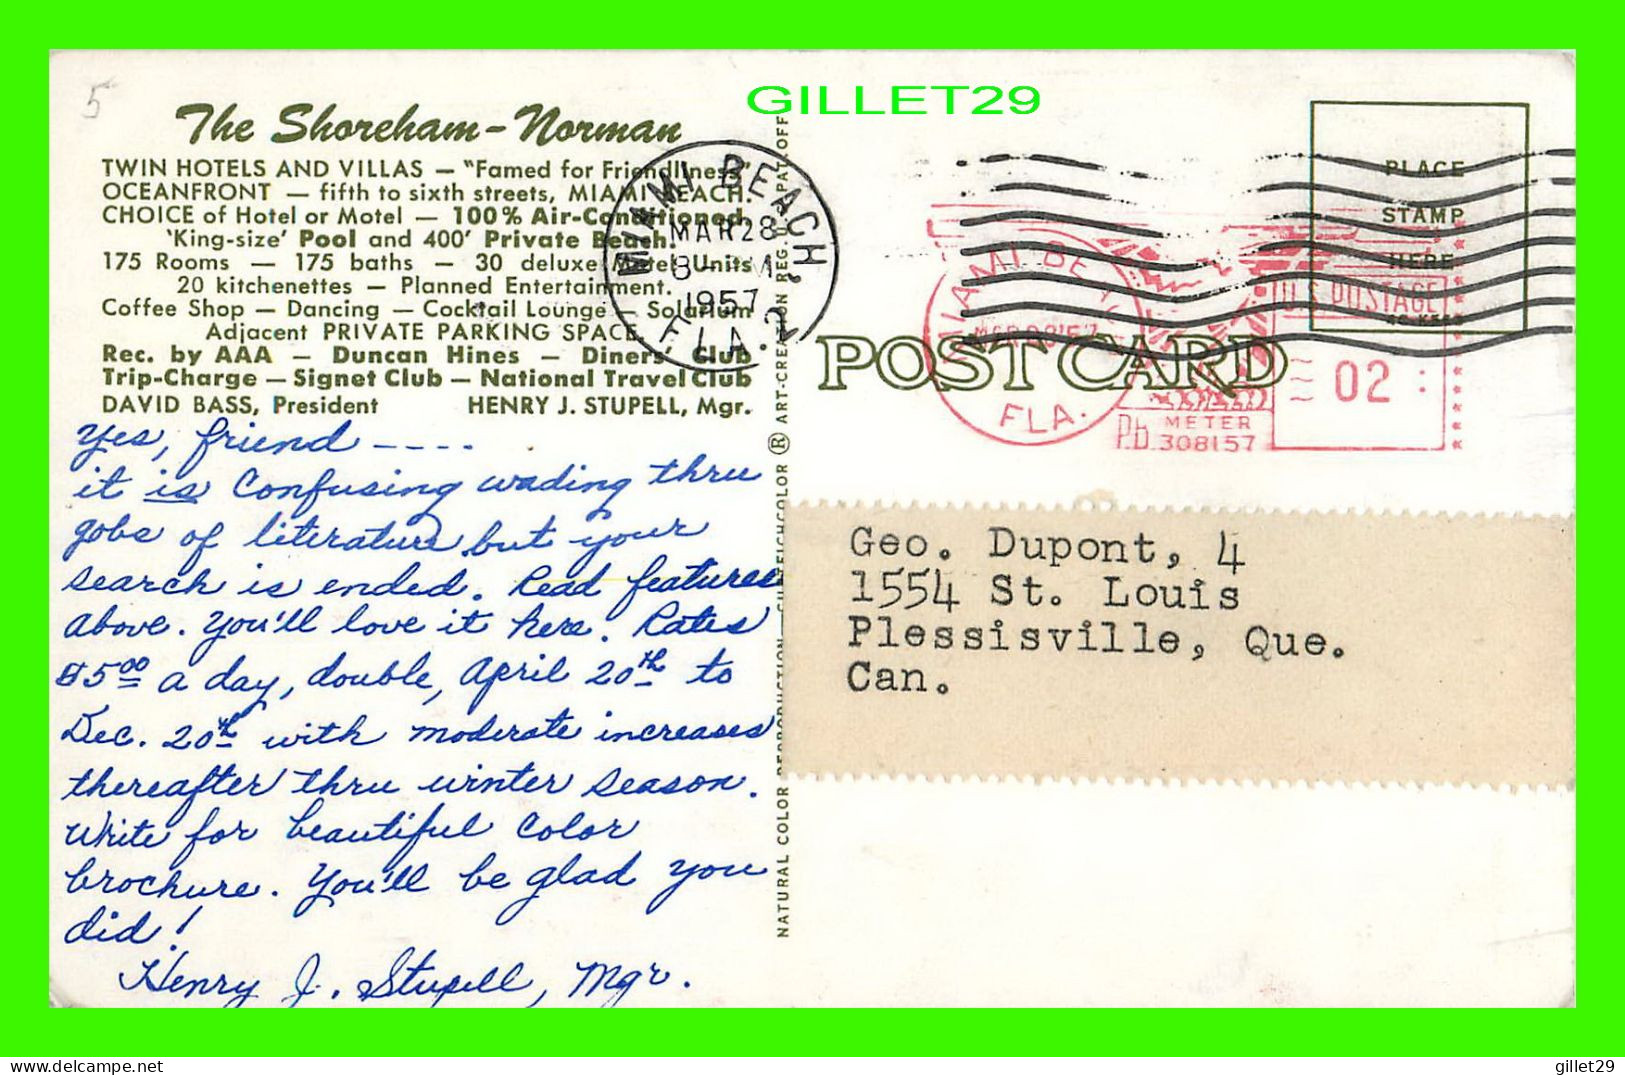 5
GILLET29
The Shoreham-Norman
TWIN HOTELS AND VILLAS — "Famed for Friendliness"
OCEANFRONT — fifth to sixth streets, MIAMI BEACH.
CHOICE of Hotel or Motel — 100% Air-Conditioned.
'King-size' Pool and 400' Private Beach.
175 Rooms — 175 baths — 30 deluxe Motel Units
20 kitchenettes — Planned Entertainment.
Coffee Shop — Dancing — Cocktail Lounge — Solarium
Adjacent PRIVATE PARKING SPACE.
Rec. by AAA — Duncan Hines — Diners' Club
Trip-Charge — Signet Club — National Travel Club
DAVID BASS, President HENRY J. STUPELL, Mgr.
yes, friend ----
it is confusing wading thru
gobs of literature but your
search is ended. Read features
above. You'll love it here. Rates
$5.00 a day, double, April 20th to
Dec. 20th with moderate increases
thereafter thru winter season.
Write for beautiful color
brochure. You'll be glad you
did!
Henry J. Stupell, Mgr.
MIAMI BEACH
MAR 28
1957
FLA. 2
NATURAL COLOR REPRODUCTION
ART-CREATION REG. U. PAT. OFF
POST CARD
PLACE
STAMP
HERE
MIAMI BEACH
MAR 28 '57
FLA.
U.S. POSTAGE
02
P.B. METER
308157
Geo. Dupont, 4
1554 St. Louis
Plessisville, Que.
Can.
gillet29